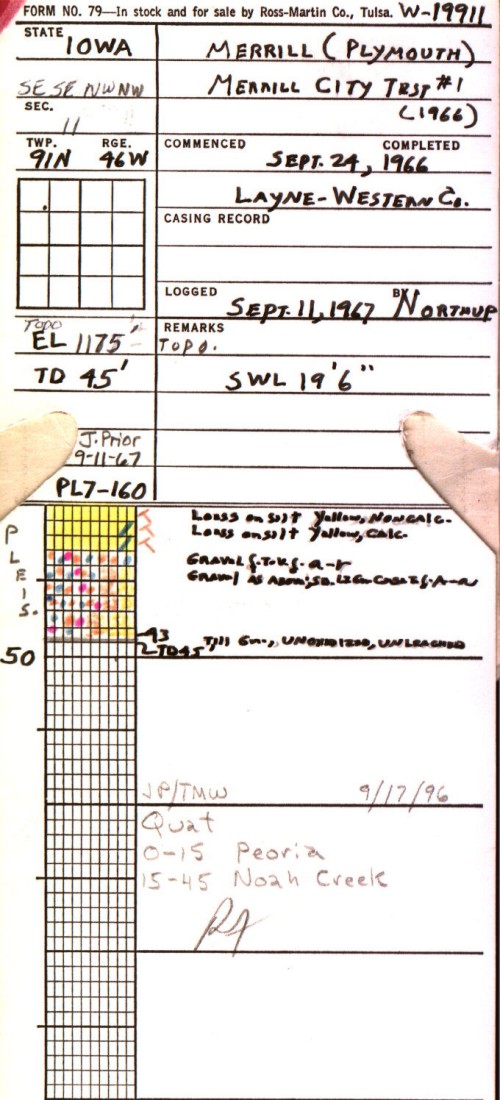 FORM NO. 79—In stock and for sale by Ross-Martin Co., Tulsa. W-19911
STATE IOWA
MERRILL (PLYMOUTH)
SE SE NW NW
MERRILL CITY TEST #1
SEC. 11
(1966)
TWP. 91N RGE. 46W
COMMENCED COMPLETED
SEPT. 24, 1966
LAYNE-WESTERN CO.
CASING RECORD
LOGGED SEPT. 11, 1967 BY NORTHUP
Topo
EL 1175'
REMARKS
TOPO.
TD 45'
SWL 19'6"
J. Prior
9-11-67
PL7-160
PLEIS.
Loess or silt Yellow, NONCALC.
Loess or silt Yellow, CALC.
GRAVEL
GRAVEL AS ABOVE
43
TD45
Till Gn., UNOXIDIZED, UNLEACHED
50
JP/TMW 9/17/96
Quat
0-15 Peoria
15-45 Noah Creek